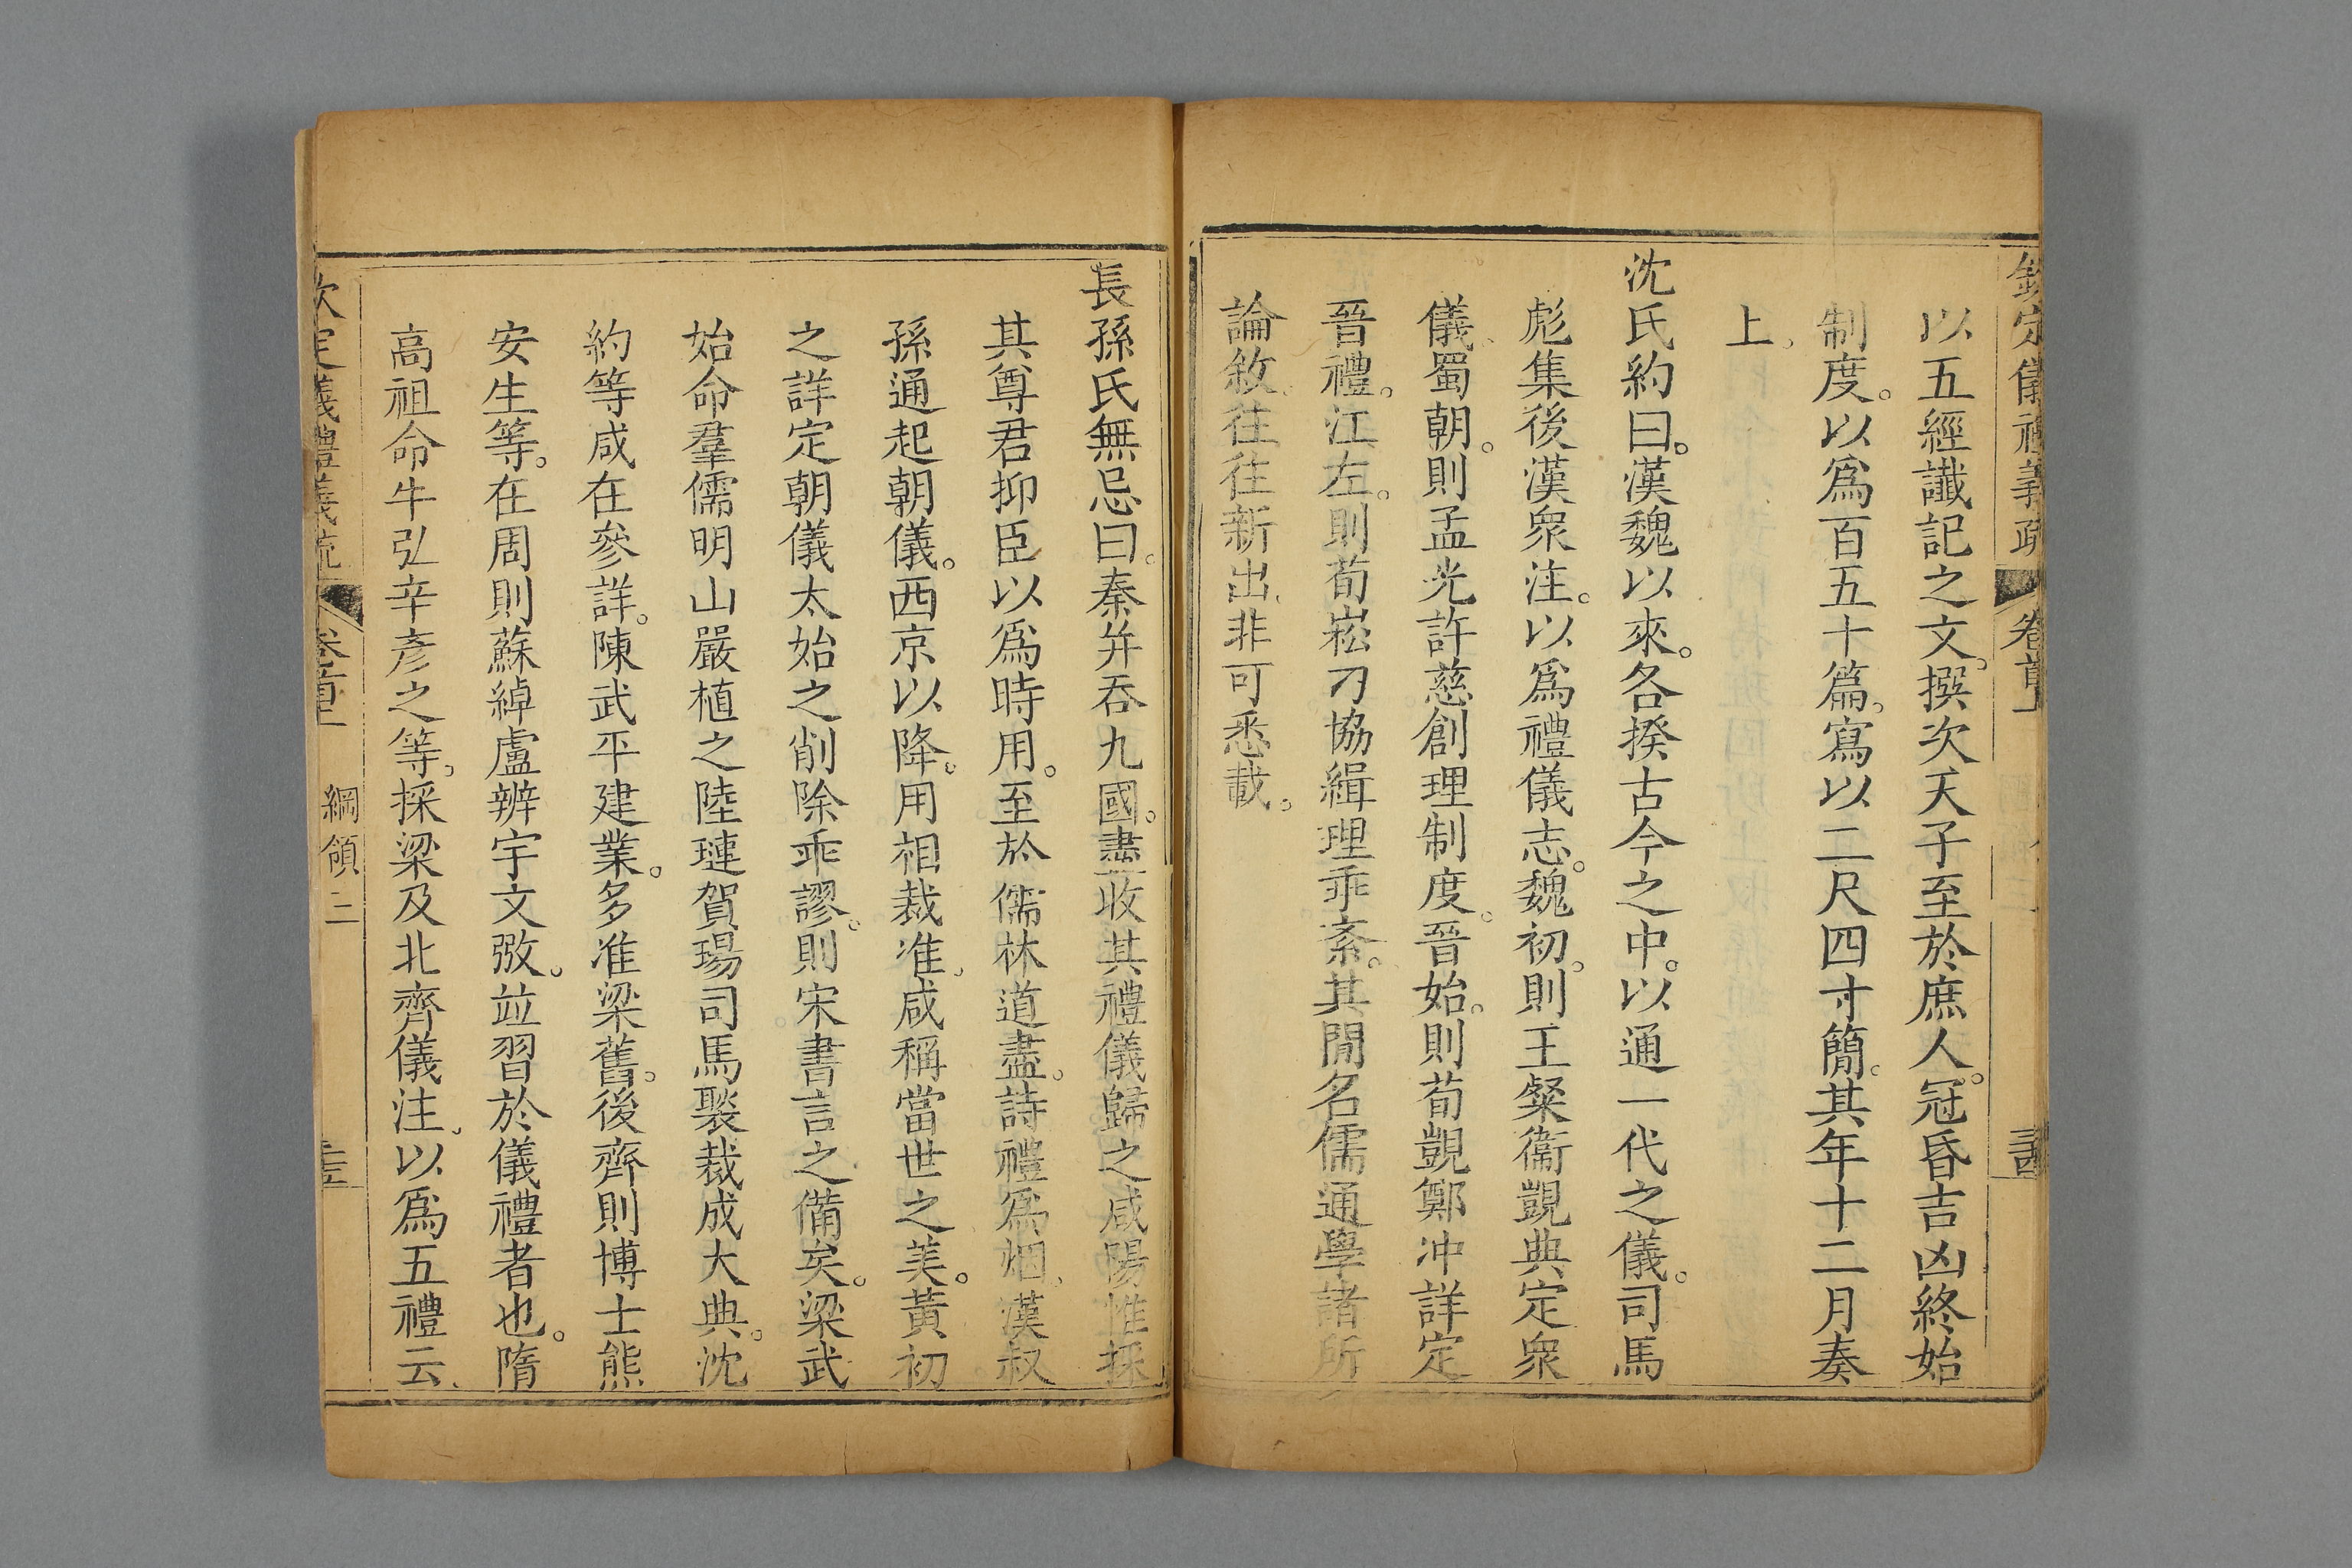 欽定儀禮義疏 卷首上
以五經讖記之文。撰次天子至於庶人。冠昏吉凶終始
制度。以爲百五十篇。寫以二尺四寸簡。其年十二月奏
上。
沈氏約曰。漢魏以來。各揆古今之中。以通一代之儀。司馬
彪集後漢眾注。以爲禮儀志。魏初。則王粲衞覬典定眾
儀。蜀朝。則孟光許慈創理制度。晉始。則荀覬鄭沖詳定
晉禮。江左。則荀崧刁協緝理乖紊。其閒名儒通學諸所
論敘。往往新出。非可悉載。
長孫氏無忌曰。秦并吞九國。盡收其禮儀歸之咸陽惟採
其尊君抑臣以爲時用。至於儒林道盡。詩禮爲烟。漢叔
孫通起朝儀。西京以降。用相裁准。咸稱當世之美。黃初
之詳定朝儀太始之削除乖謬。則宋書言之備矣。梁武
始命羣儒明山嚴植之陸璉賀瑒司馬褧裁成大典。沈
約等咸在參詳。陳武平建業。多准梁舊。後齊則博士熊
安生等。在周則蘇綽盧辨宇文㢸。竝習於儀禮者也。隋
高祖命牛弘辛彥之等。採梁及北齊儀注。以爲五禮云。
欽定儀禮義疏 卷首上 綱領二